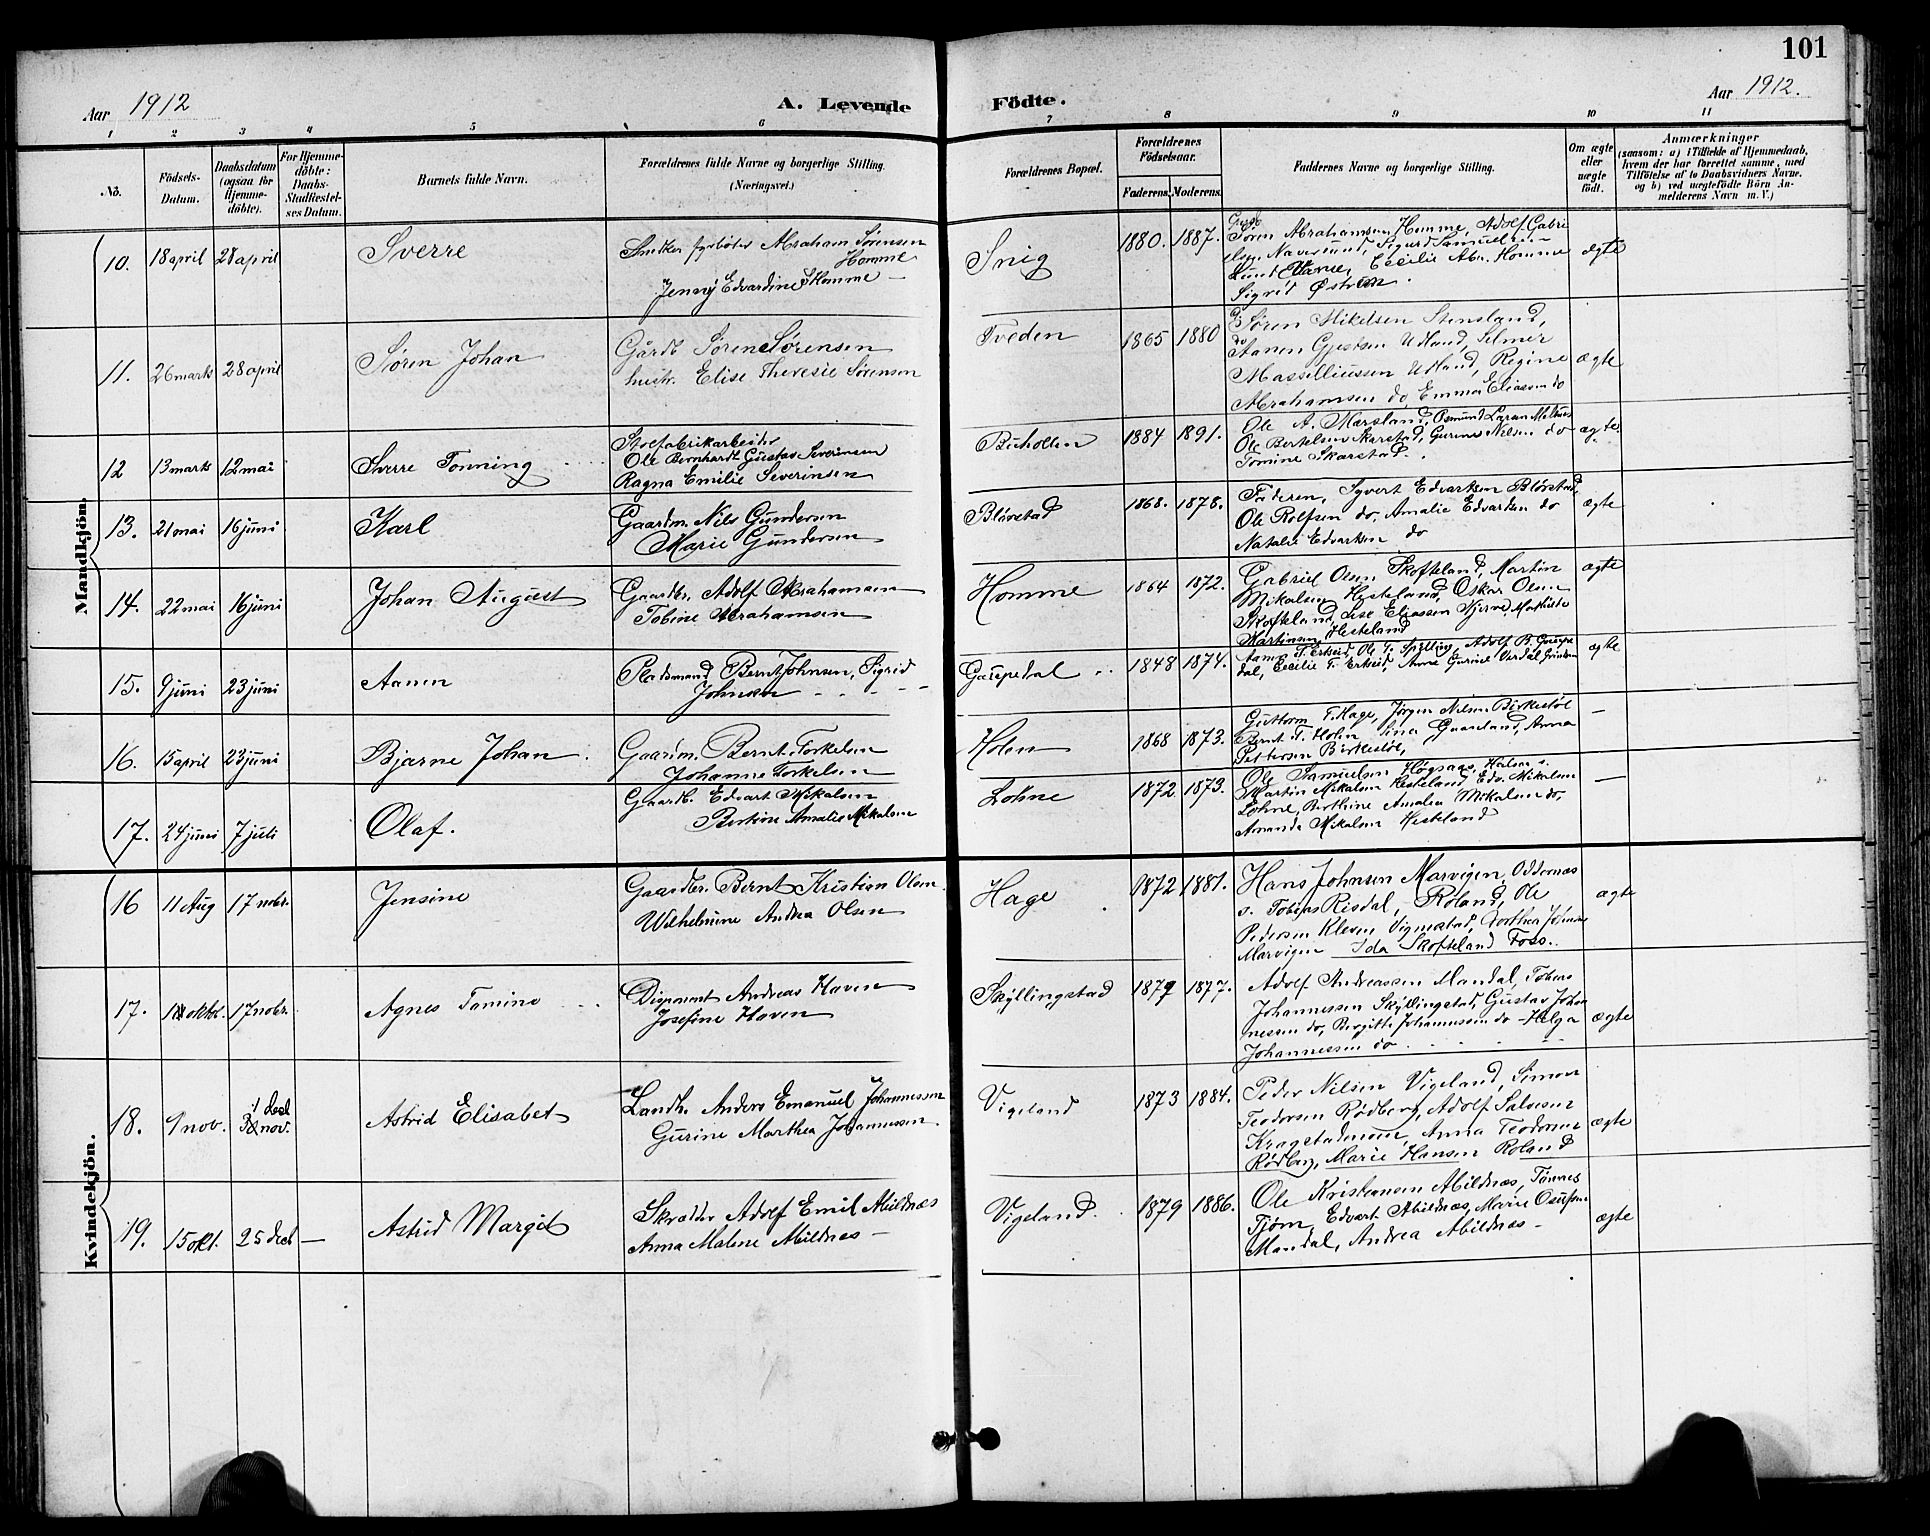 101
Aar 1912
A. Levende
Födte.
Aar 1912.
1 2 3 4 5 6 7 8 9 10 11
No.
Födsels-
Datum.
Daabsdatum
(ogsaa for
Hjemme-
döbte).
For Hjemme-
döbte:
Daabs-
Stadfæstel-
ses Datum.
Barnets fulde Navn.
Forældrenes fulde Navne og borgerlige Stilling.
(Næringsvei.)
Forældrenes Bopæl.
Forældrenes
Födselsaar.
Faderens. Moderens.
Faddernes Navne og borgerlige Stilling.
Om ægte
eller
uægte
födt.
Anmærkninger
(saasom: a) i Tilfælde af Hjemmedaab,
hvem der har forrettet samme, med
Tilföielse af to Daabsvidners Navne.
og b) ved uægtefödte Börn An-
melderens Navn m. V.)
Mandkjön.
10. 18 april 28 april Sverre
Abraham Sørensen
Homme
Jenny Edvardine Homme
Snig 1880. 1887.
Søren Abrahamsen Homme, Adolf Gabri
Cecilie Abr. Homme
Sigrid
ægte
11. 26 marts 28 april Søren Johan
Gårdb Søren Sørensen
hustr. Elise Theresie Sørensen
Tveden 1865 1880
Søren Mikelsen Stensland,
Aanen Gjertsen Udland, Selmer
Massellussen Udland, Regine
Abrahamsen do, Emma Eliassen do
ægte
12 13 marts 12 mai Sverre Tonning
Stolfabrikarbeider
Ole Bernhardt Gustav Severinsen
Ragna Emilie Severinsen
1884 1891.
Ole A. Marstand, Osmund Larsen
Ole Bertelsen Skarstad, Gurine Nilsen do
Tomine Skarstad.
ægte.
13. 21 mai 16 juni Karl
Gaardm. Nils Gundersen
Marie Gundersen
Bløvstad 1868. 1878.
Faderen, Syvert Edvartsen Bløvstad,
Ole Rolfsen do, Amalie Edvartsen do
Natalie Edvartsen do
ægte
14. 22 mai 16 juni Johan August
Gaardbr. Adolf Abrahamsen
Tobine Abrahamsen
Homme 1864 1872.
Gabriel Olsen Skofteland, Martin
Mikalsen Hesteland, Oskar Olsen
Skofteland, Lise Eliassen
Martinsen Hesteland
ægte
15. 9 juni 23 juni Aanen
Pladsmand Bernt Johnsen, Sigrid
Johnsen
Gasepedal 1848 1874.
Cecilie T. Erkeid, Anne Gurine
ægte
16. 15 april 23 juni Bjarne Johan
Gaardm. Bernt Torkelsen
Johanne Torkelsen
Holen 1868 1873.
Guttorm T. Hage, Jørgen Nilsen Birkestøl
Bernt T. Holen, Sina Gaaseland, Anna
Pettersen Birkestøl,
—
17. 24 juni 7 juli Olaf.
Gaardb. Edvart Mikalsen
Bertine Amalie Mikalsen
Lohne 1872 1873.
Ole Samuelsen Høgsaas,
Martin Mikalsen Hesteland, Edv. Mikalsen
Lohne, Berthine Amalia Mikalsen do,
Amanda Mikalsen Hesteland
—
Kvindekjön.
16 11 Aug 17 nobr. Jensine
Gaardbr. Bernt Kristian Olsen.
Wilhelmine Andrea Olsen
Hage 1872 1881.
Hans Johnsen Marvigen, Oddernæs
s. Tobias Risdal, Roland, Ole
Pedersen Kleven Vigmostad, Dorthea Johnsen
Marvigen Ida Skofteland Foss.
ægte
17. oktbr. 17 nobr. Agnes Tomine
Disponent Andreas Haven
Josefine Haven
Skyllingstad 1879 1877.
Adolf Andreassen Mandal, Tobias
Johannessen Skyllingstad, Gustav Johan
nessen do, Birgitte Johannessen do - Helga
Johannessen do
ægte
18. 9 nov. 1 decb nov. Astrid Elisabet
Landh. Anders Emanuel Johannessen
Gurine Marthea Johannessen.
Vigeland 1873 1884.
Peder Nilsen Vigeland, Simon
Teodorsen Rødberg, Adolf Salvesen
Kragstadmoen, Anna Teodorsen
Rødberg, Marie Hansen Roland
ægte
19. 15 okt. 25 decb — Astrid Margit
Skrædder Adolf Emil Abildnæs
Anna Malene Abildnes —
Vigeland. 1879 1886.
Ole Kristensen Abildnæs, Tönnes
Tjøm, Edvart Abildnæs, Marie
Mandal, Andrea Abildnæs —
ægte